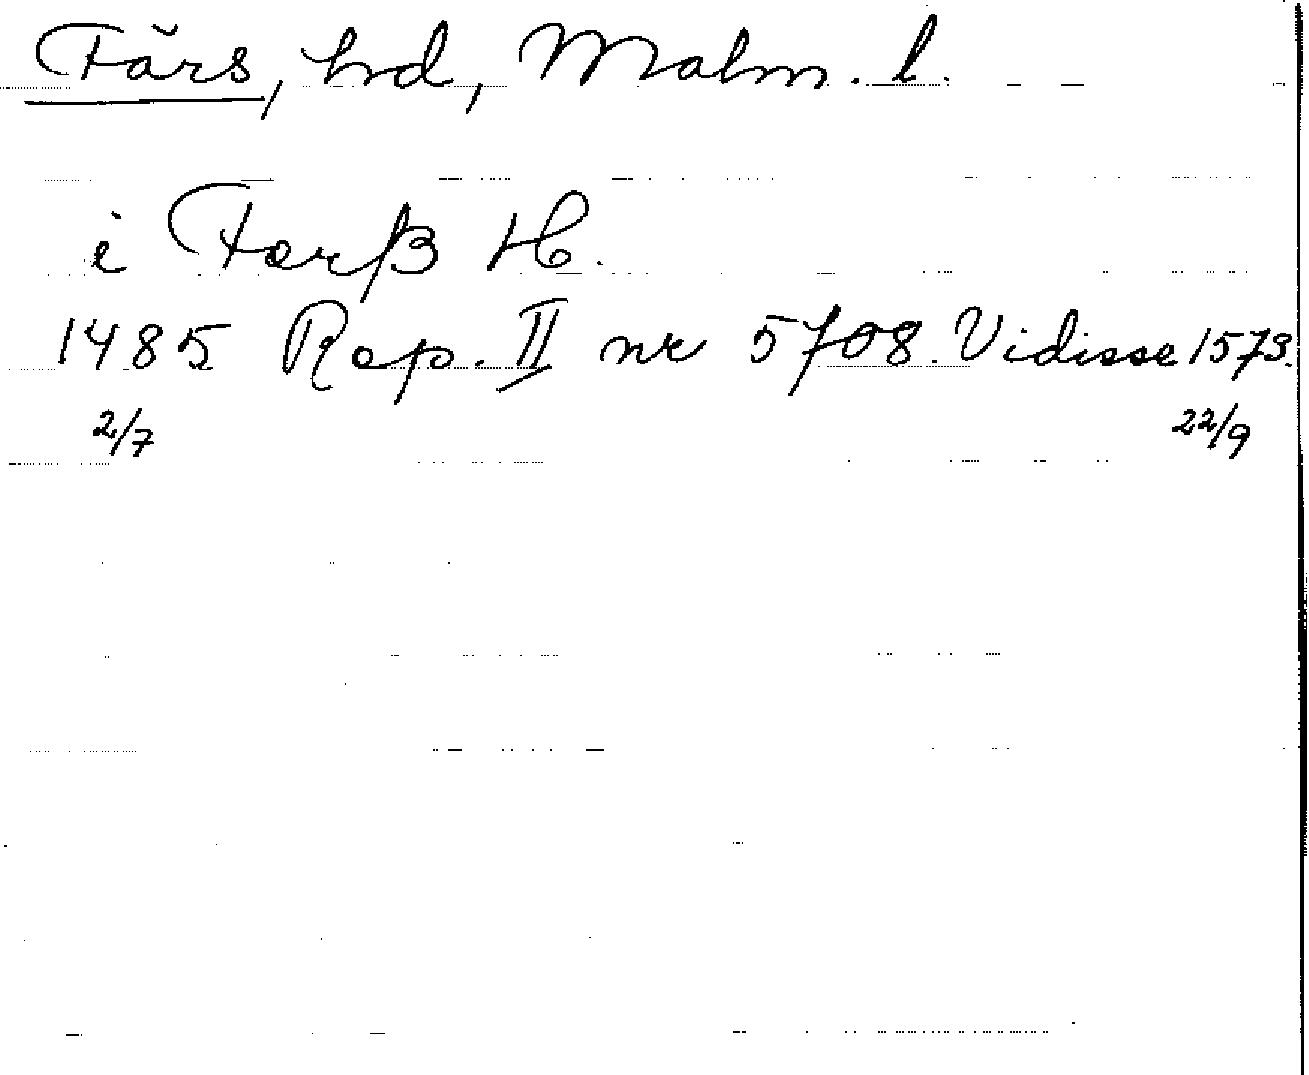 Färs, hd, Malm. l.
i Færß H.
1485 Rep. II nr 5708. Vidisse 1573.
2/7 22/9